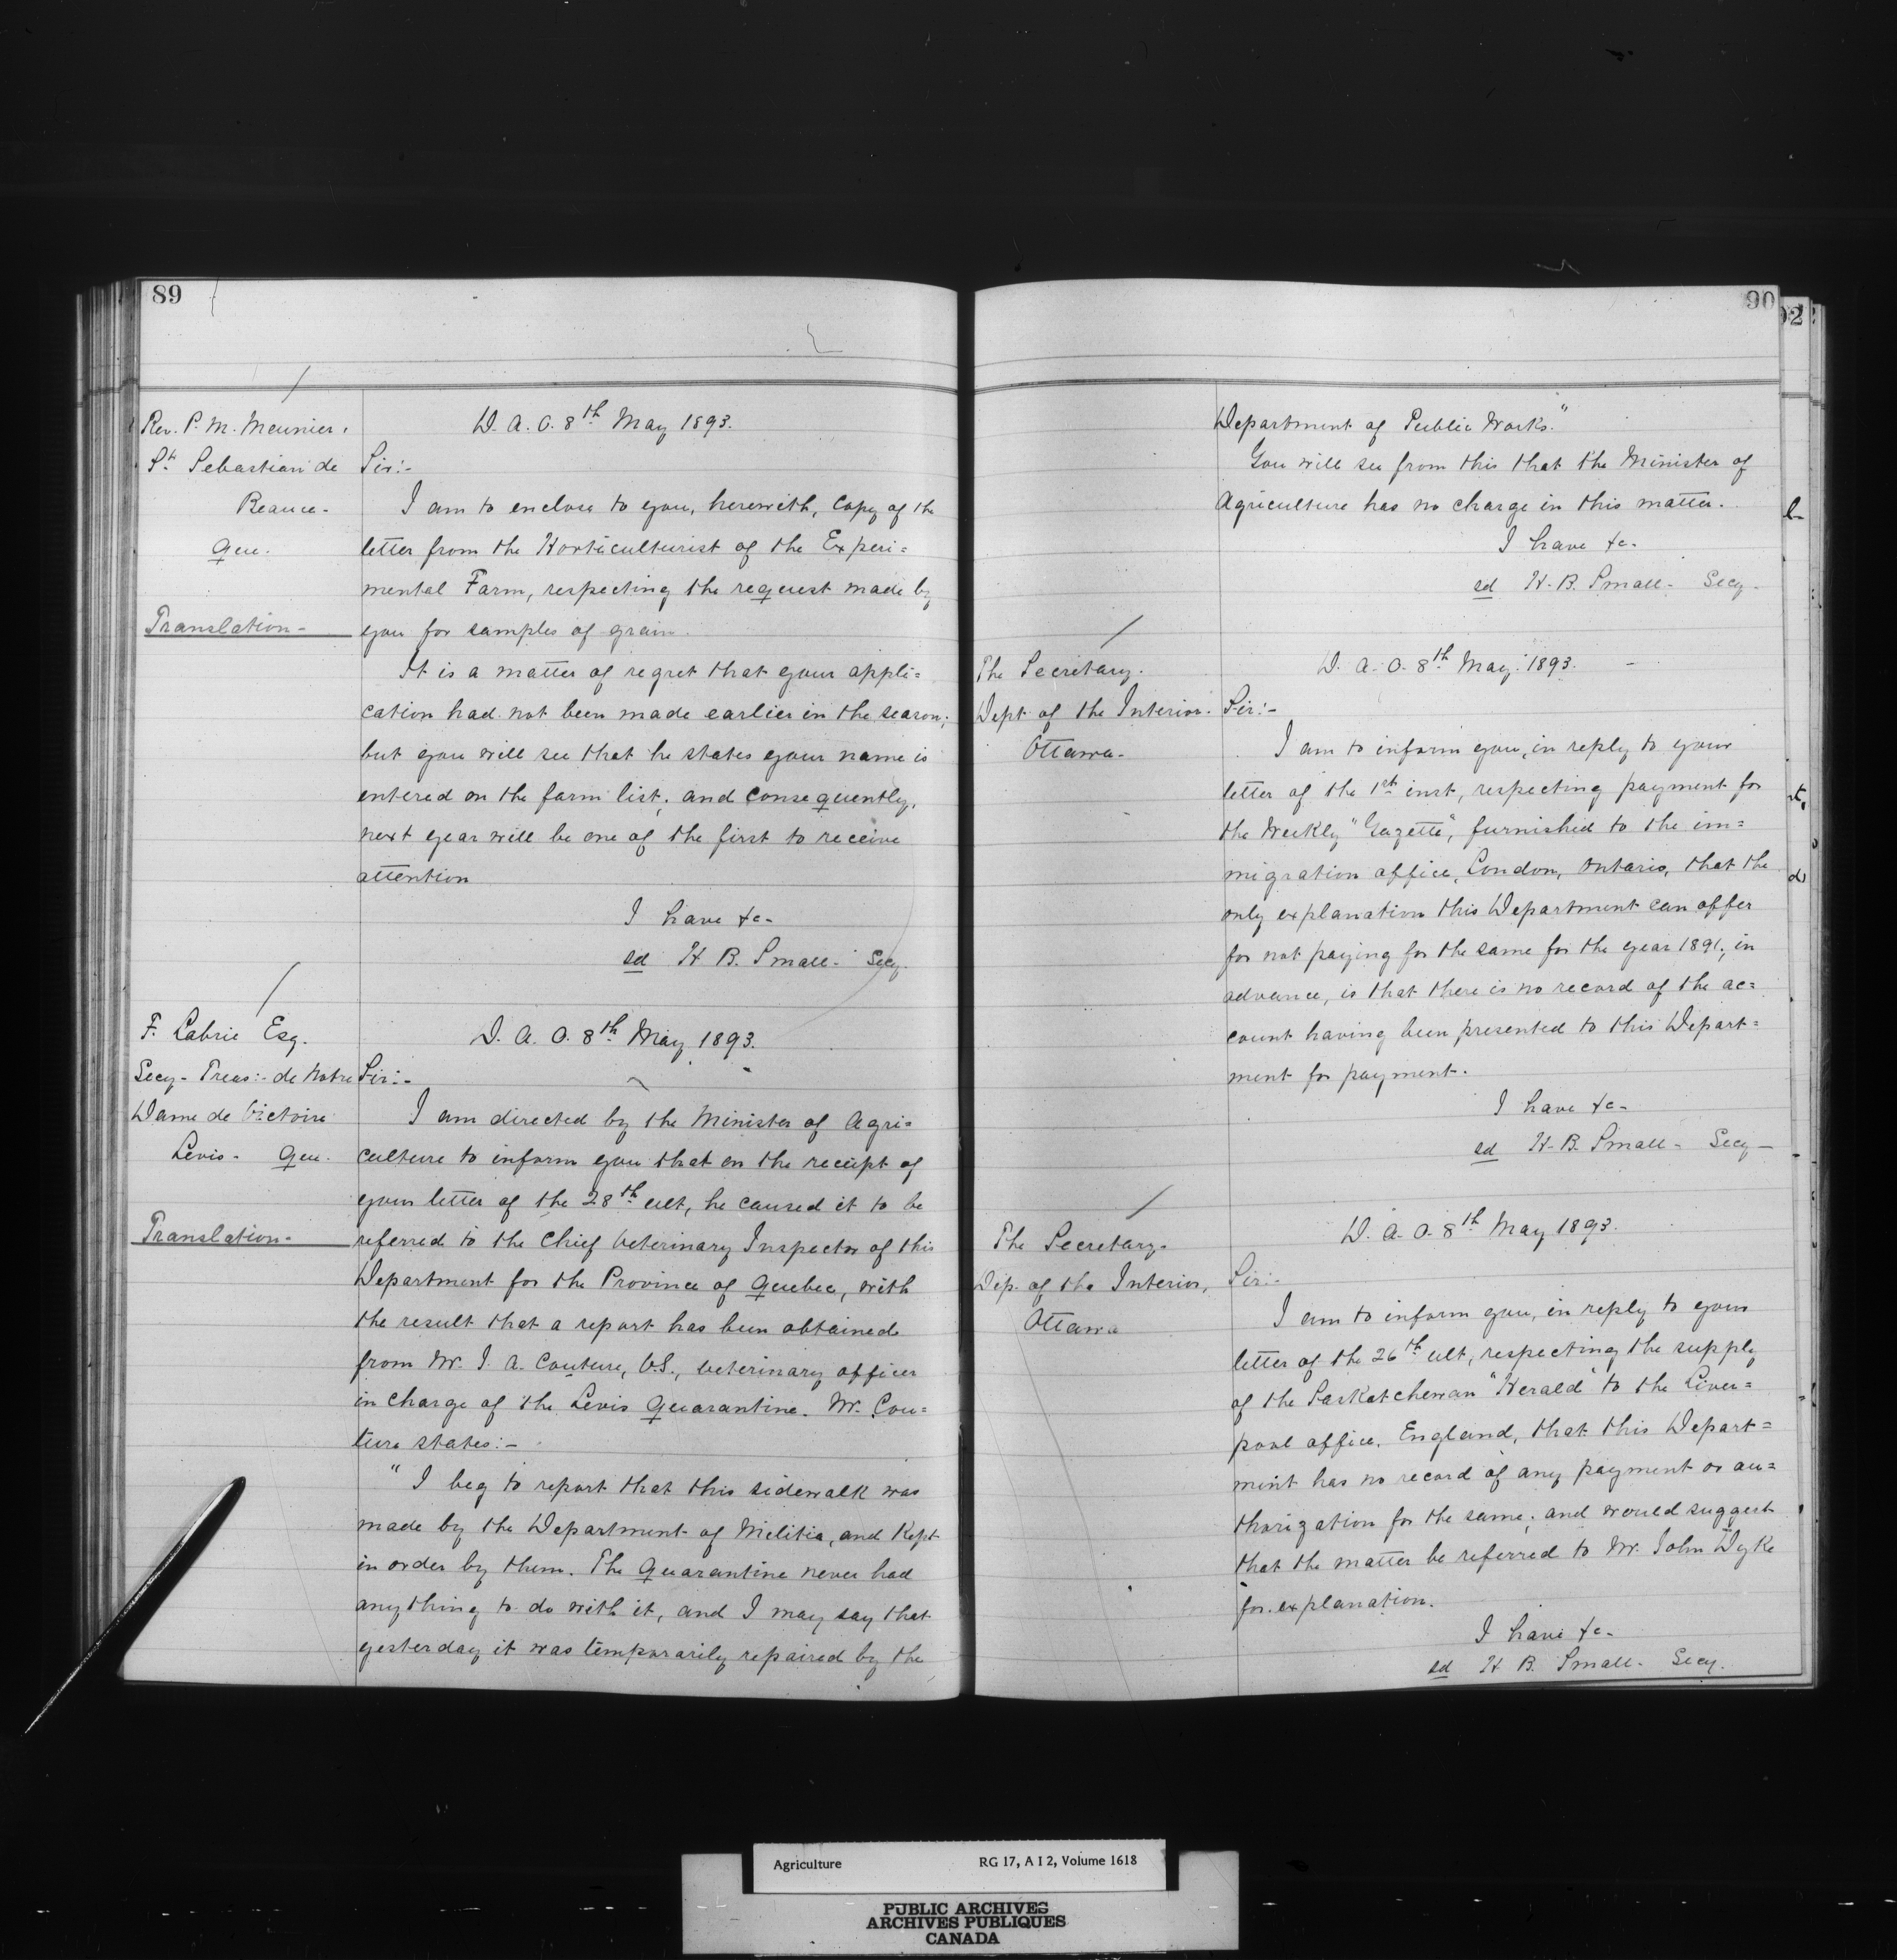 89
Rev. P. M. Meunier.
St. Sebastian de
Beauce-
Que.
Translation-
D. A. O. 8th May 1893.
Sir:-
I am to enclose to you, herewith, copy of the
letter from the Horticulturist of the Experi=
mental Farm, respecting the request made by
you for samples of grain.
It is a matter of regret that your appli=
cation had not been made earlier in the season;
but you will see that he states your name is
entered on the farm list; and consequently,
next year will be one of the first to receive
attention
I have &c-
sd H. B. Small- Secy.
F. Labrie Esq.
Secy-Treas:- de Notre
Dame de Victoire
Levis- Que.
Translation-
D. A. O. 8th May 1893.
Sir:-
I am directed by the Minister of Agri=
culture to inform you that on the receipt of
your letter of the 28th ult, he caused it to be
referred to the Chief Veterinary Inspector of this
Department for the Province of Quebec, with
the result that a report has been obtained
from Mr. J. A. Couture, V.S., veterinary officer
in charge of the Levis Quarantine. Mr. Cou=
ture states:-
"I beg to report that this sidewalk was
made by the Department of Militia, and kept
in order by them. The Quarantine never had
anything to do with it, and I may say that
yesterday it was temporarily repaired by the
90
Department of Public Works."
You will see from this that the Minister of
Agriculture has no charge in this matter.
I have &c-
sd H. B. Small- Secy.
The Secretary.
Dept of the Interior.
Ottawa-
D. A. O. 8th May 1893.
Sir:-
I am to inform you, in reply to your
letter of the 1st inst, respecting payment for
the Weekly "Gazette", furnished to the im=
migration office, London, Ontario, that the
only explanation this Department can offer
for not paying for the same for the year 1891, in
advance, is that there is no record of the ac=
count having been presented to this Depart=
ment for payment.
I have &c-
sd H. B. Small- Secy-
The Secretary-
Dep. of the Interior,
Ottawa
D. A. O. 8th May 1893.
Sir:-
I am to inform you, in reply to your
letter of the 26th ult, respecting the supply
of the Saskatchewan "Herald" to the Liver=
pool office, England, that this Depart=
ment has no record of any payment or au=
thorization for the same; and would suggest
that the matter be referred to Mr. John Dyke
for explanation.
I have &c-
sd H. B. Small- Secy.
Agriculture RG 17, A I 2, Volume 1618
PUBLIC ARCHIVES
ARCHIVES PUBLIQUES
CANADA